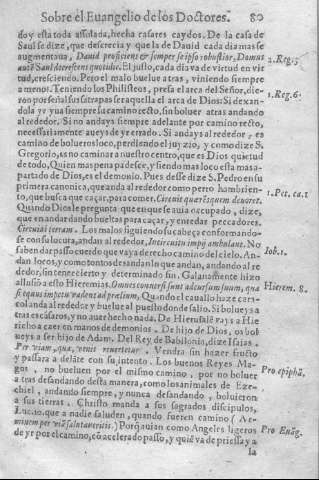 Sobre el Euangelio de los Doctores. 80
doy esta toda assolada, hecha casares caydos. De la casa de
Saul se dize, que descrecia y que la de Dauid cada dia mas se
augmentaua, Dauid proficiens et semper se ipso robustior, Domus
2. Reg. 3
autē Saul decrescens quotidie. El justo, cada dia va de virtud en vir
tud, cresciendo. Pero el malo buelue atras, viniendo siempre
a menos. Teniendo los Philisteos, presa el arca del Señor, die-
1. Reg. 6.
ron por señal sus satrapas sera aquella el arca de Dios: Si dexan-
dola yr yua siempre su camino recto, sin boluer atras andando
al rededor. Si no andays siempre adelante por camino recto,
necessariamente aueys de yr errado. Si andays al rededor, es
camino de bolueros loco, perdiendo el juyzio, y como dize S.
Gregorio, es no caminar a nuestro centro, que es Dios quietud
de todo, Quien mas pena padesce, y siendo mas loco esta mas a-
partado de Dios, es el demonio. Pues desse dize S. Pedro en su
primera canonica, que anda al rededor como perro hambrien-
1. Pet. ca. 1
to, que busca que caçar, para comer. Circuit quærēs quem deuoret.
Quando Dios le pregunta que en que se auia occupado, dize,
que en andar dando bueltas para caçar, y enredar peccadores.
Circuiui terram. Los malos siguiendo su cabeça conformando-
se con su locura, andan al rededor, In circuitu impij ambulant. No
Iob. 1.
saben dar passo cuerdo que vaya derecho camino del cielo. An-
dan locos, y como tontos desandan lo que andan, andando al re
dedor, sin tener cierto y determinado fin. Galanamente hizo
allusiō a esto Hieremias. Omnes conuersi sunt ad cursum suum, qua
Hierem. 8.
si equus impetu vadens ad prælium, Quando el cauallo haze cars-
colanda al rededor y buelue al puesto donde salio. Si bolueys a
tras escasaros, y no auer hecho nada. De Hierusalē vays a Hie
richo a caer en manos de demonios. De hijo de Dios, os bol
ueys a ser hijo de Adam. Del Rey de Babilonia, dize Isaias.
Per viam, qua, venit reuertetur. Vendra sin hazer fructo
y passara a delāte con su intento. Los buenos Reyes Ma-
gos, no bueluen por el mismo camino, por no boluer
Pro epiphā,
a tras desandando desta manera, como los animales de Eze-
chiel, andando siempre, y nunca desandando, boluieron
a sus tierras. Christo manda a sus sagrados discipulos,
Lucio, que a nadie saluden, quando fueren camino (Ne-
minem per viā salutaueritis.) Porq̄ auian como Angeles ligeros
Pro Euāg.
de yr por el camino, cō accelerado passo, y quiē va de priessa y a
la